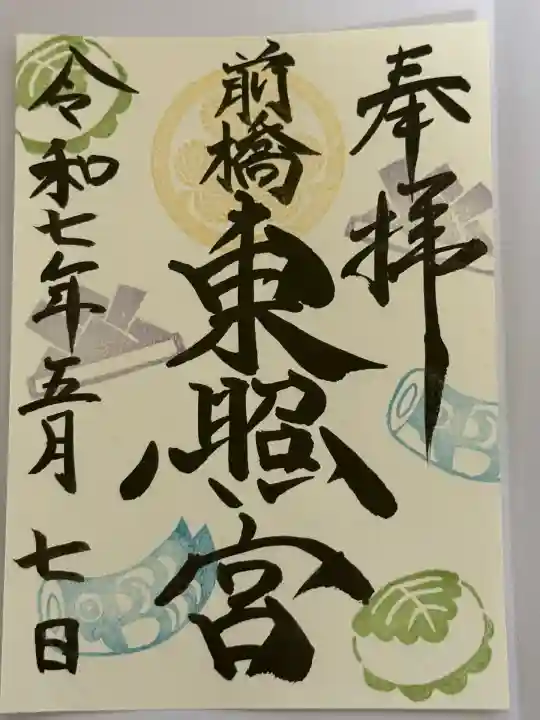 奉拝
前橋
東照宮
令和七年五月七日